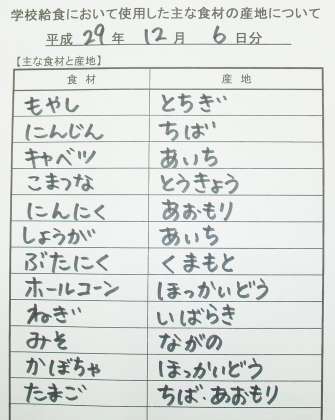 学校給食において使用した主な食材の産地について
平成 29 年 12 月 6 日分
【主な食材と産地】
食材 産地
もやし とちぎ
にんじん ちば
キャベツ あいち
こまつな とうきょう
にんにく あおもり
しょうが あいち
ぶたにく くまもと
ホールコーン ほっかいどう
ねぎ いばらき
みそ ながの
かぼちゃ ほっかいどう
たまご ちば・あおもり